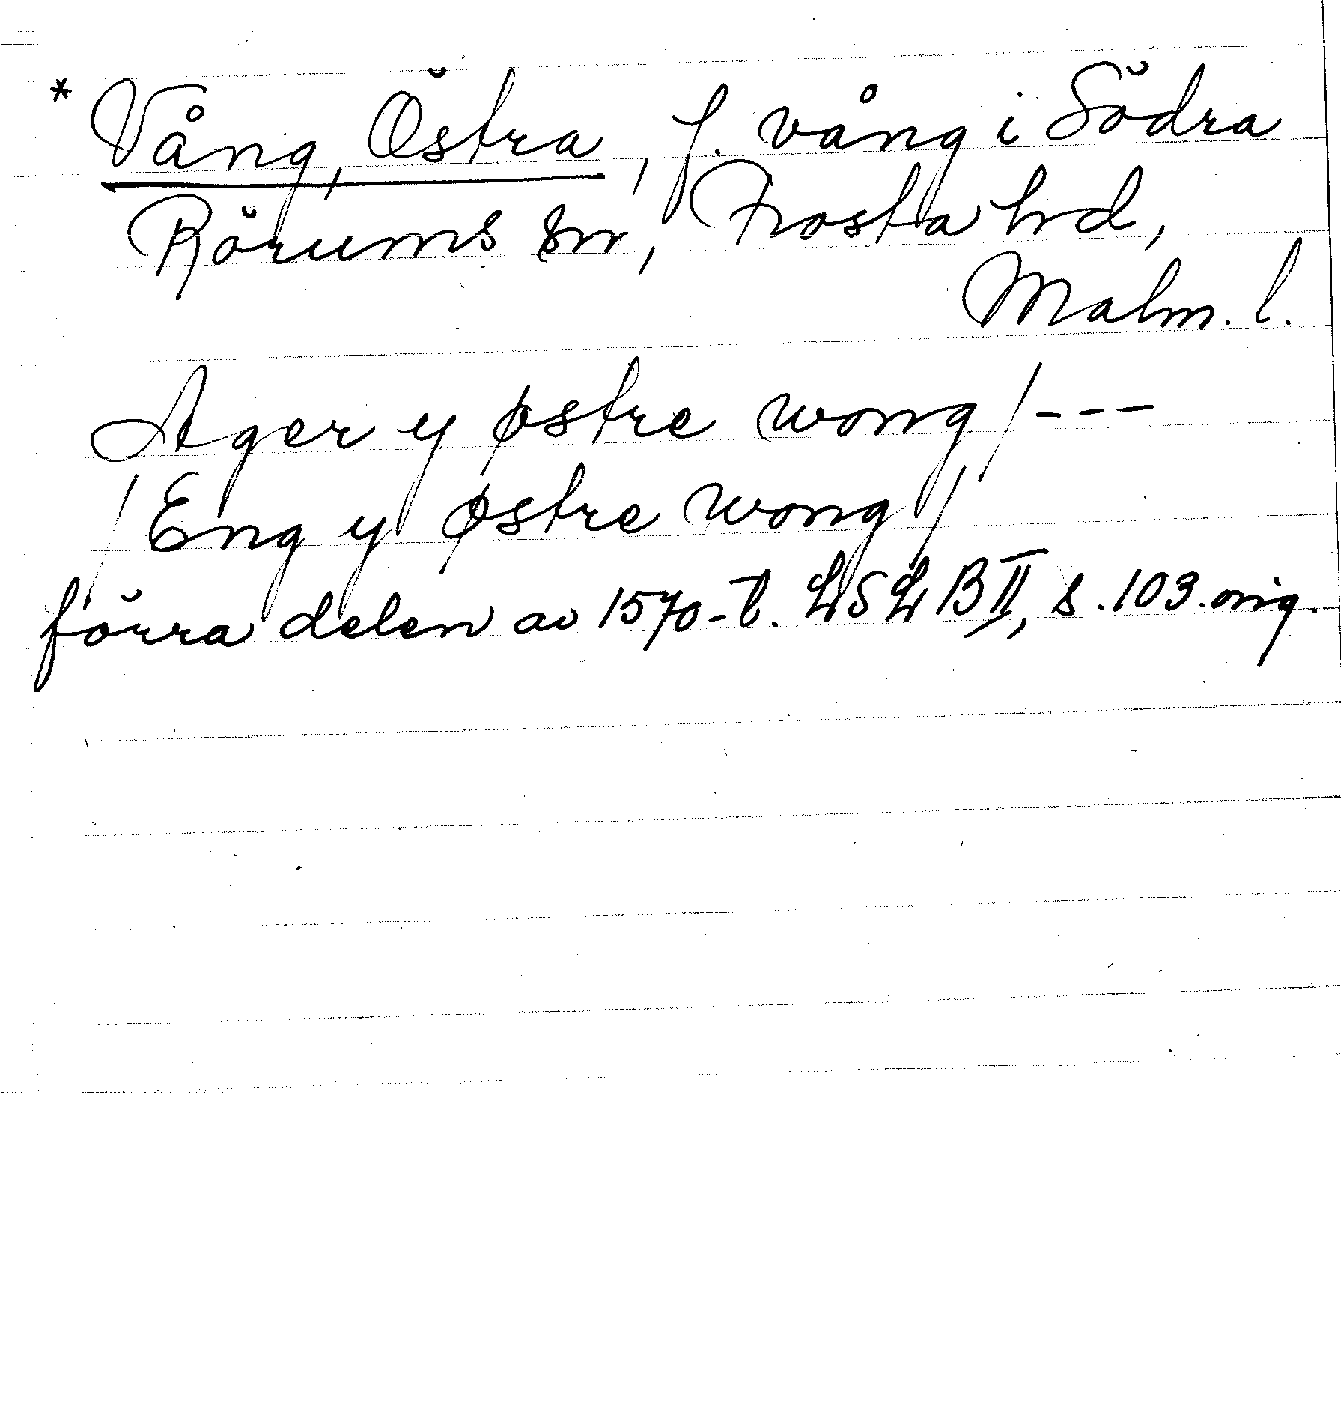 * Vång, Östra, f. vång i Södra
Rörums sn, Frosta hd,
Malm. l.
Ager y østre wong / ---
/ Eng y østre wong /
förra delen av 1570-t. LSLB II, s. 103. orig.